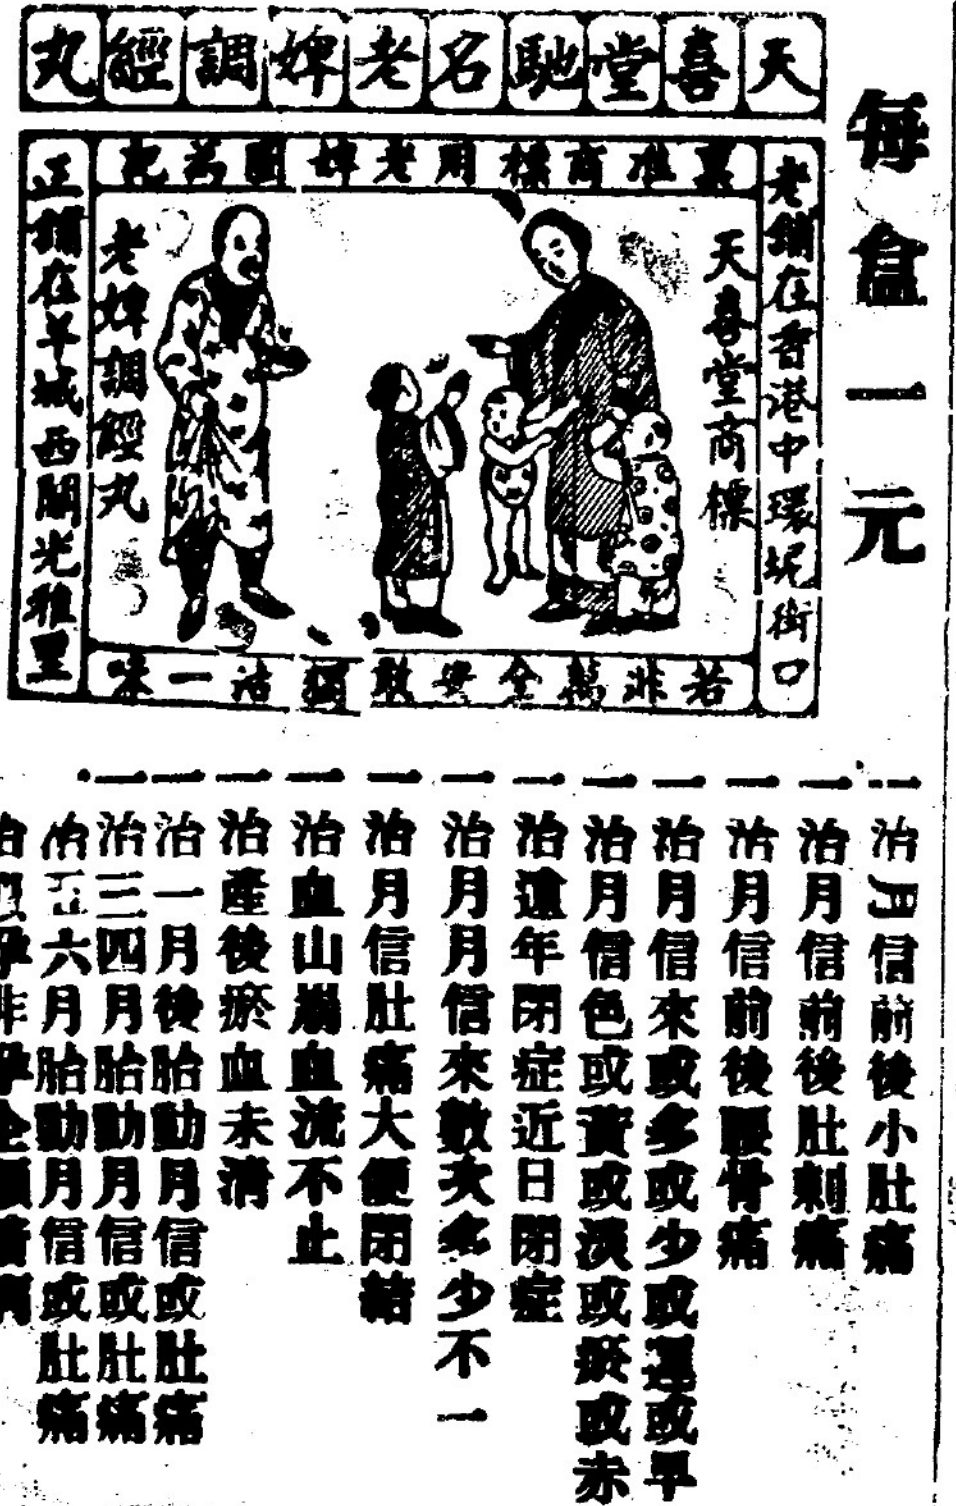 天喜堂馳名老婢調經丸
每盒一元
老鋪在香港中環坭街口
稟准商標用老婢圖為記
正鋪在羊城西關光雅里
天喜堂商標
老婢調經丸
若非萬全安敢獨沽一味
一治月信前後小肚痛
一治月信前後肚刺痛
一治月信前後腰骨痛
一治月信來或多或少或遲或早
一治月信色或黃或淡或瘀或赤
一治遠年閉症近日閉症
一治月月信來數次多少不一
一治月信肚痛大便閉結
一治血山崩血流不止
一治產後瘀血未清
一治一月後胎動月信或肚痛
一治三四月胎動月信或肚痛
治五六月胎動月信或肚痛